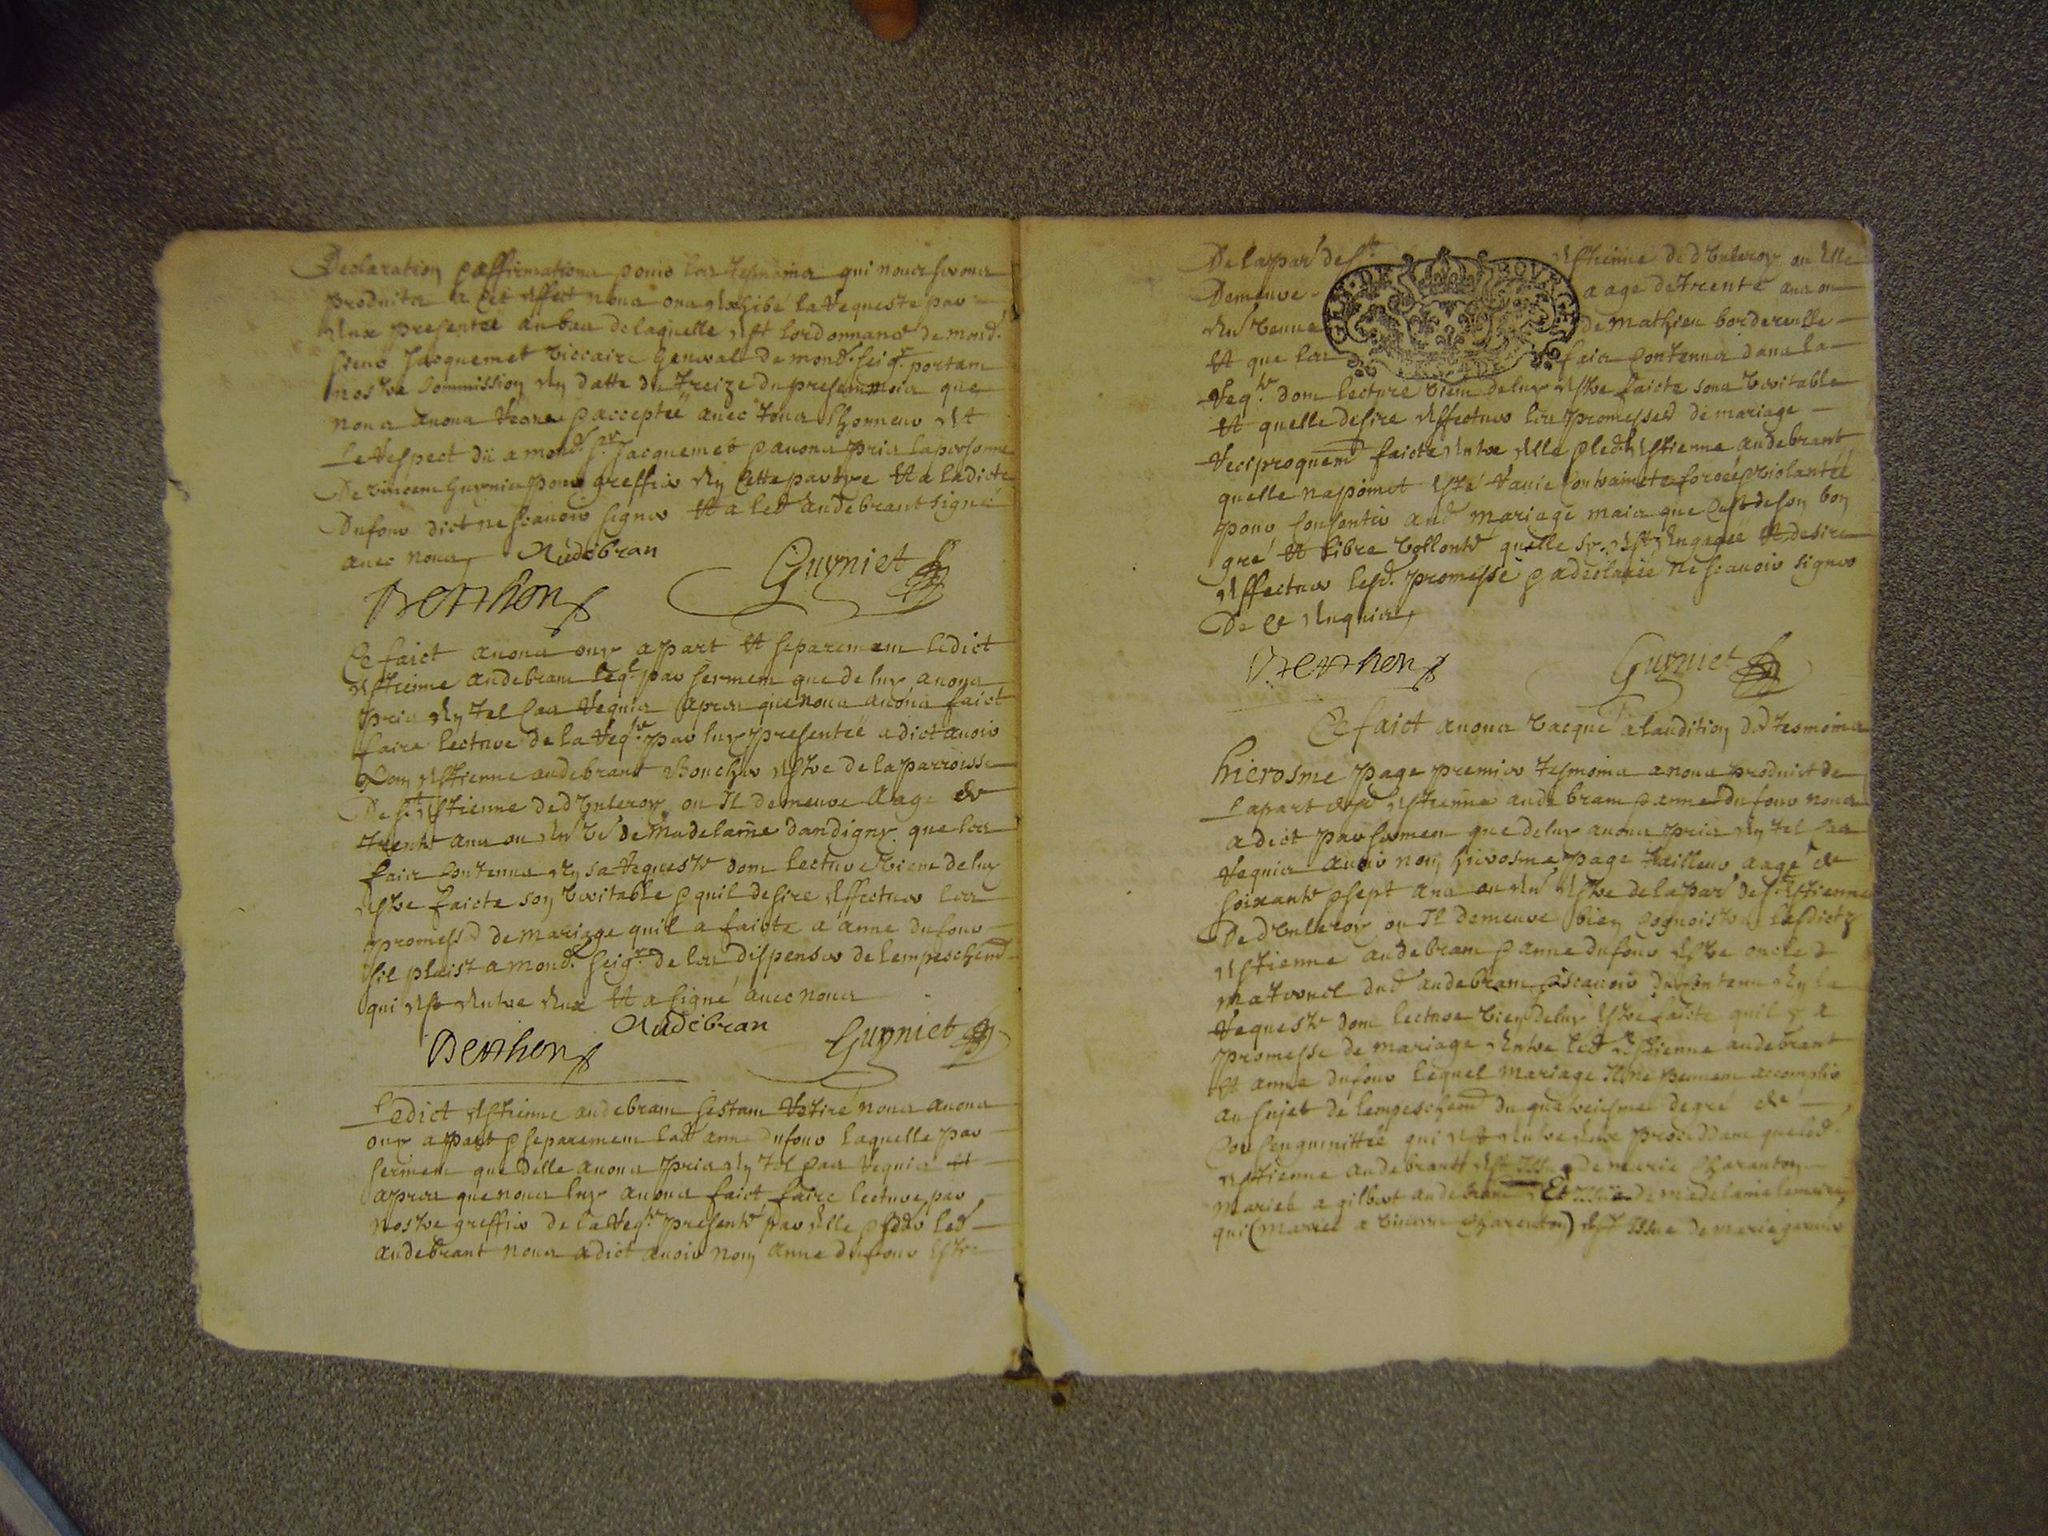 Declaration & affirmations pour les tesmoins qui nous seront
produits a cet effect nous ont exhibé la requeste par
eux presentée au bas de laquelle est lordonnance de mond.
sieur Jacquemet viccaire general de mond. seigr. portant
nostre commission en datte du treize du present mois que
nous avons receue & acceptée avec tous lhonneur et
le respect dü a mond. Sr. Jacquemet & avons pris la personne
De vincent Guyniet pour greffier en cette partye et a ladicte
Dufour dict ne scavoir signer et a led audebrant signé
avec nous Audebran
Berthon Guyniet
Ce faict avons ouy a part et separement ledict
estienne audebrant leql. par serment que de luy avons
pris en tel cas requis apres que nous avons faict
faire lecture de la reqte. par luy presentée a dict avoir
nom estienne audebrant Boucher estre de la parroisse
De st. estienne de d'enteroy ou Il demeure Aagé de
trente ans ou env. de Madelaine dandigny que les
faits contenus en sa requeste dont lecture vient de luy
estre faicte son veritable & quil desire effectuer les
promesses de mariage quil a faicte a anne dufour
sil plaist a mond. seigr. de les dispenser de lempeschemt
qui est entre eux et a signé avec nous
Audebran
Berthon Guyniet
Ledict estienne audebrant sestant retiré nous avons
ouy a part & separement lad anne dufour laquelle par
serment que delle avons pris en tel cas requis et
apres que nous luy avons faict faire lecture par
nostre greffier de la reqte. presente par elle & led
audebrant nous a dict avoir nom anne dufour estre
De la par de st estienne de d'enteroy ou elle
Demeure aage de trente ans ou
env. veuve de mathieu bordereulle
et que les faits contenus dans la
reqte. dont lecture vient de luy estre faicte sont veritable
et quelle desire effectuer les promesses de mariage
reciproquemt faicte entre elle & led estienne audebrant
quelle na point esté ravie contrainte forcée & violantée
pour consentir aud mariage mais que cest de son bon
gré et libre vollonté quelle sy est engagée et desire
effectuer lesd. promesse & a declarée ne scavoir signer
De ce enquise
Berthon Guyniet
Ce faict avons vacqué a laudition des tesmoins
hierosme page premier tesmoins a nous produict de
la part desd estienne audebrant & anne dufour nous
a dict par serment que de luy avons pris en tel cas
requis avoir nom hierosme page tailleur aagé de
soixante & sept ans ou env estre de la par de st. estienne
De d'enteroy ou Il demeure bien cognoistre lesdictz
estienne audebrant & anne dufour estre oncle
maternel dud audebrant & scavoir du contenu en la
requeste dont lecture vien de luy estre faicte quil y a
promesse de mariage entre led estienne audebrant
et anne dufour lequel mariage Ils ne peuvent accomplir
au sujet de lempeschemt du quatreiesme degré de
consenguinittée qui est entre eux procedant que led.
estienne audebrant est Issu de marie Charanton
mariée a gilbert audebrant Et Issüe de madelaine
qui (mariée a vincent Charenton) est Issue de marie